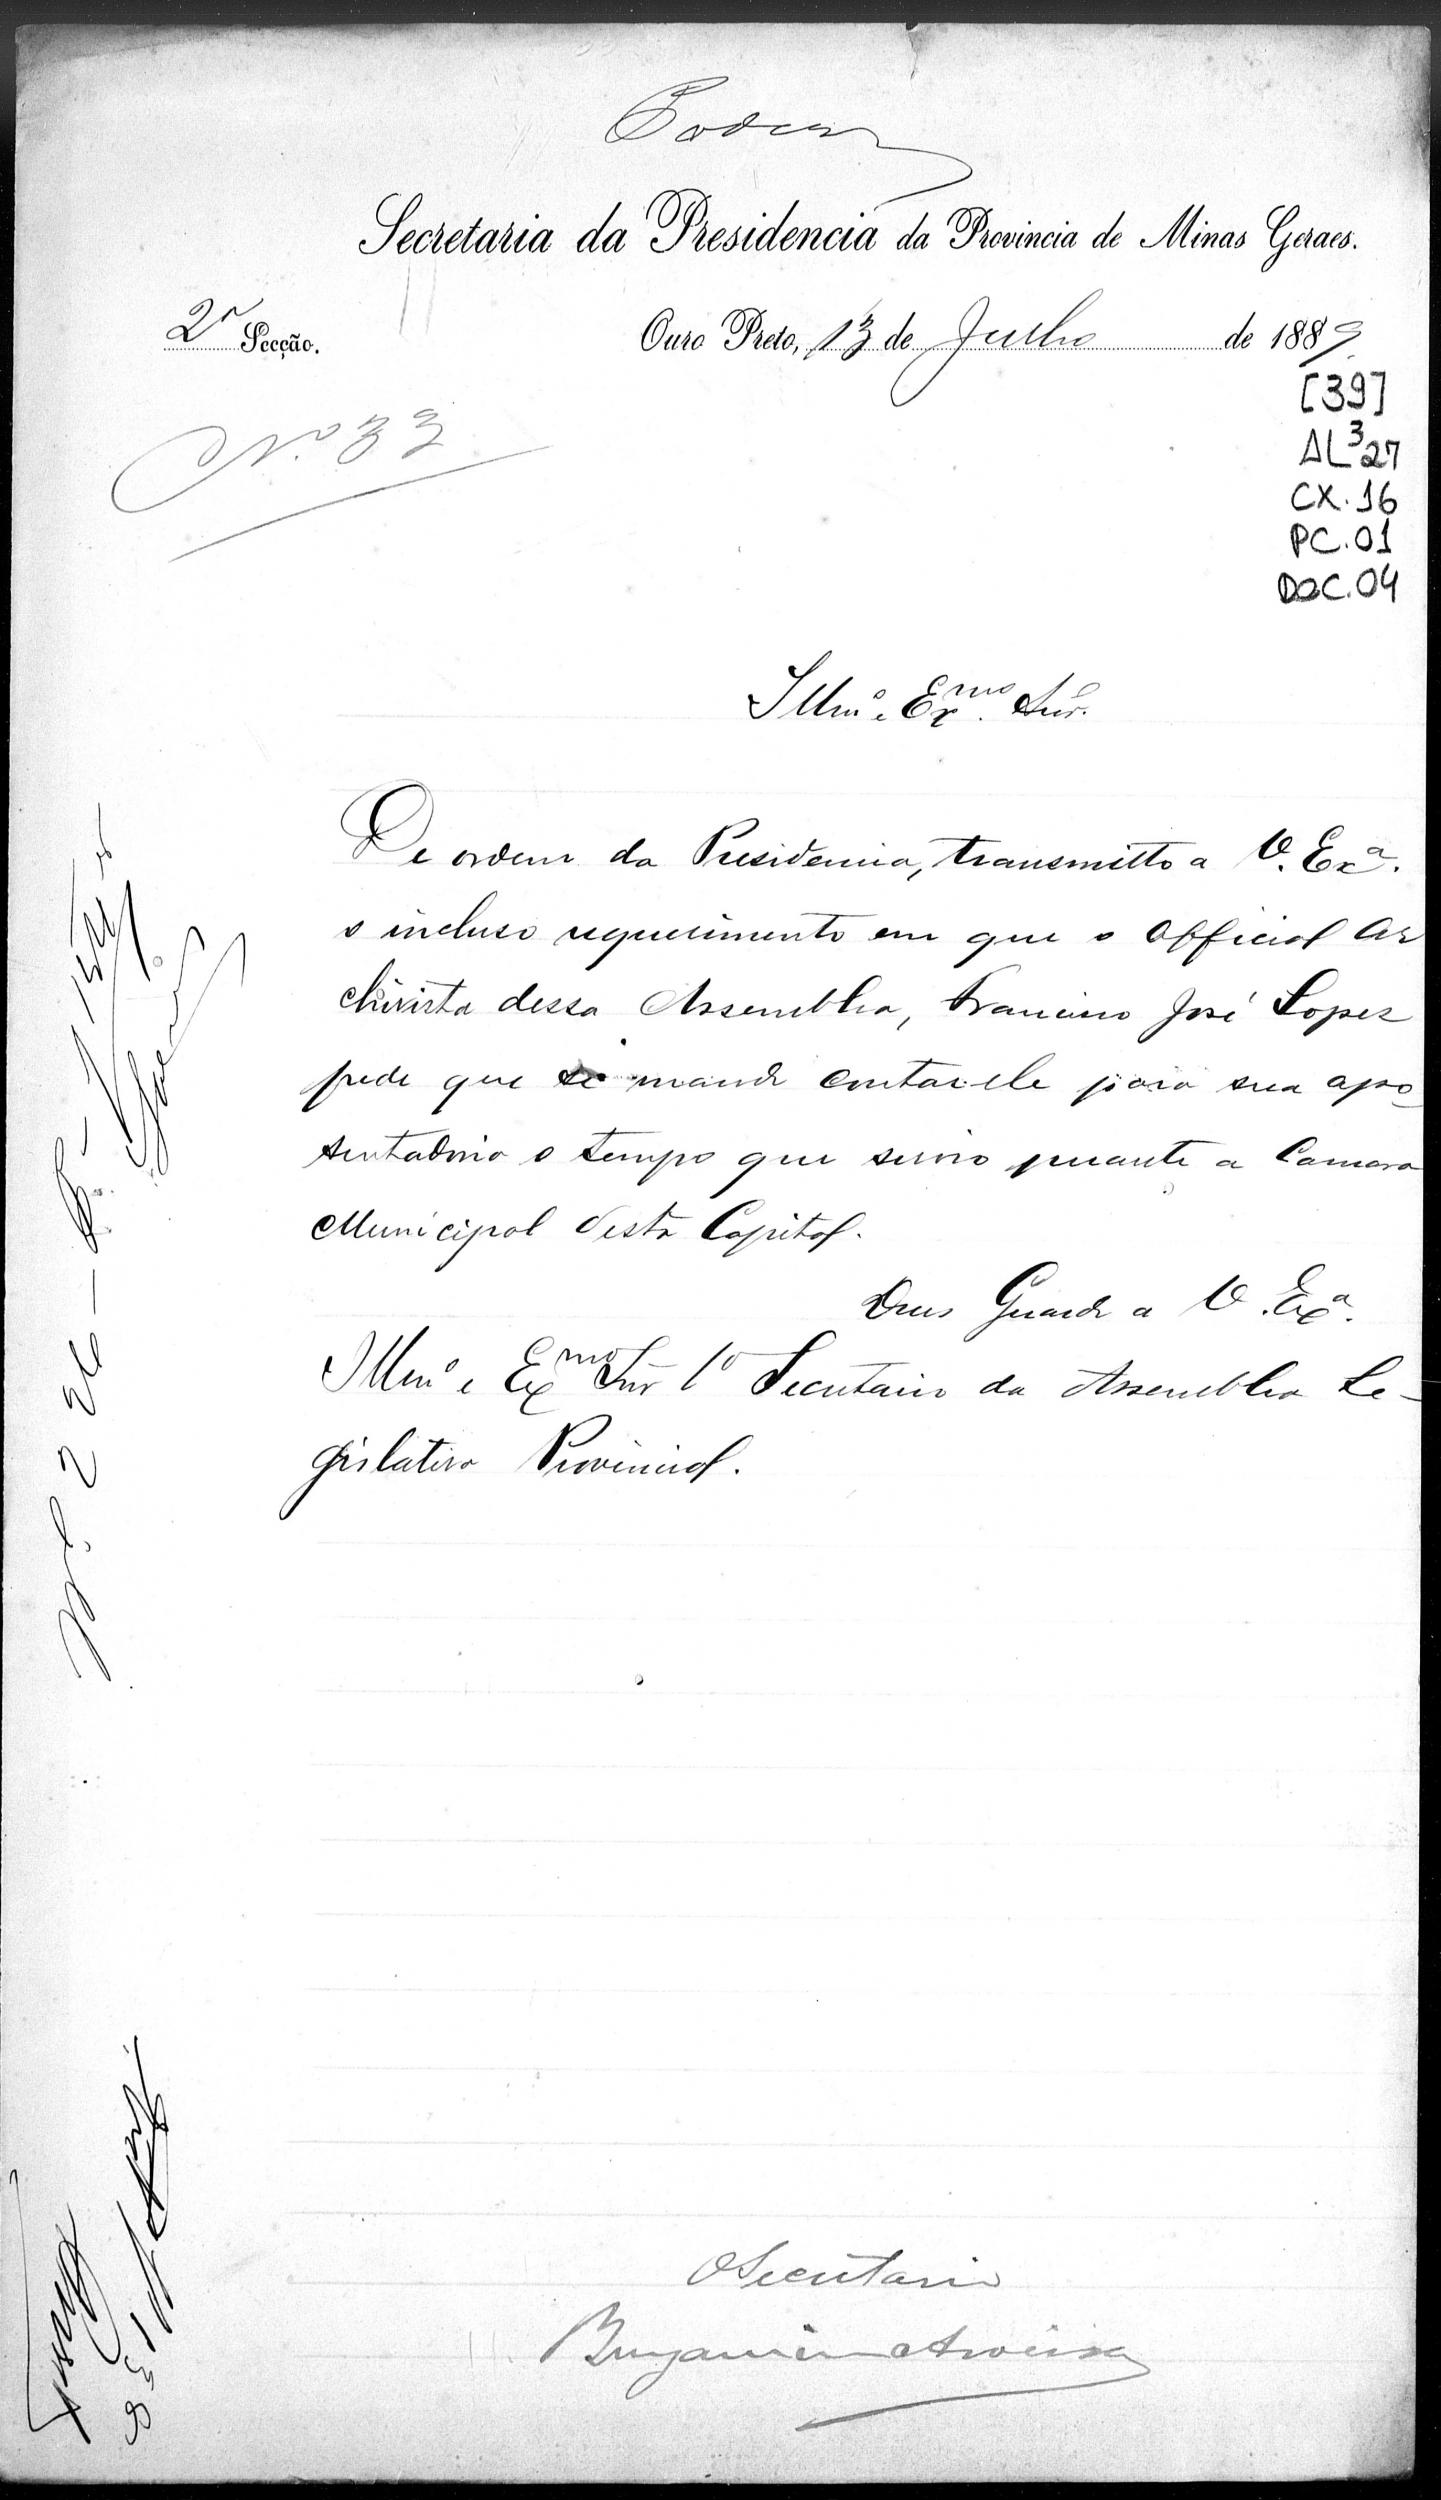 Secretaria da Presidencia da Provincia de Minas Geraes.
2ª Secção.
Ouro Preto, 13 de Julho de 1889
Nº 33
[39]
AL³27
CX.16
PC.01
DOC.04
Illmº e Exmo. Snr.
De ordem da Presidencia, transmitto a V. Exª.
o incluso requerimento em que o Official Ar
chivista dessa Assemblea, Francisco José Lopes
pede que se mande contar-lhe para sua apo
sentadoria o tempo que servio perante a Camara
Municipal desta Capital.
Deus Guarde a V. Exª.
Illmº e Exmo Snr 1º Secretario da Assemblea Le-
gislativa Provincial.
O Secretario
Nº 226